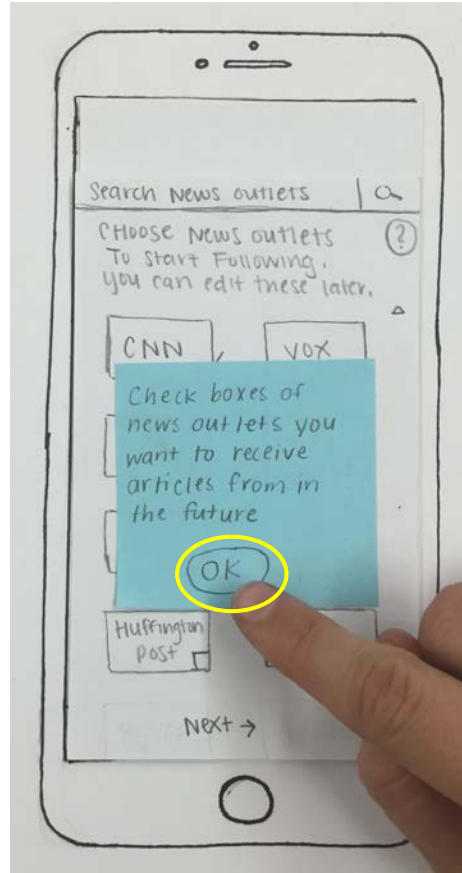 Search News outlets
CHOOSE News outlets
To Start Following.
you can edit these later.
?
CNN
VOX
Check boxes of
news outlets you
want to receive
articles from in
the future
OK
Huffington
Post
Next →